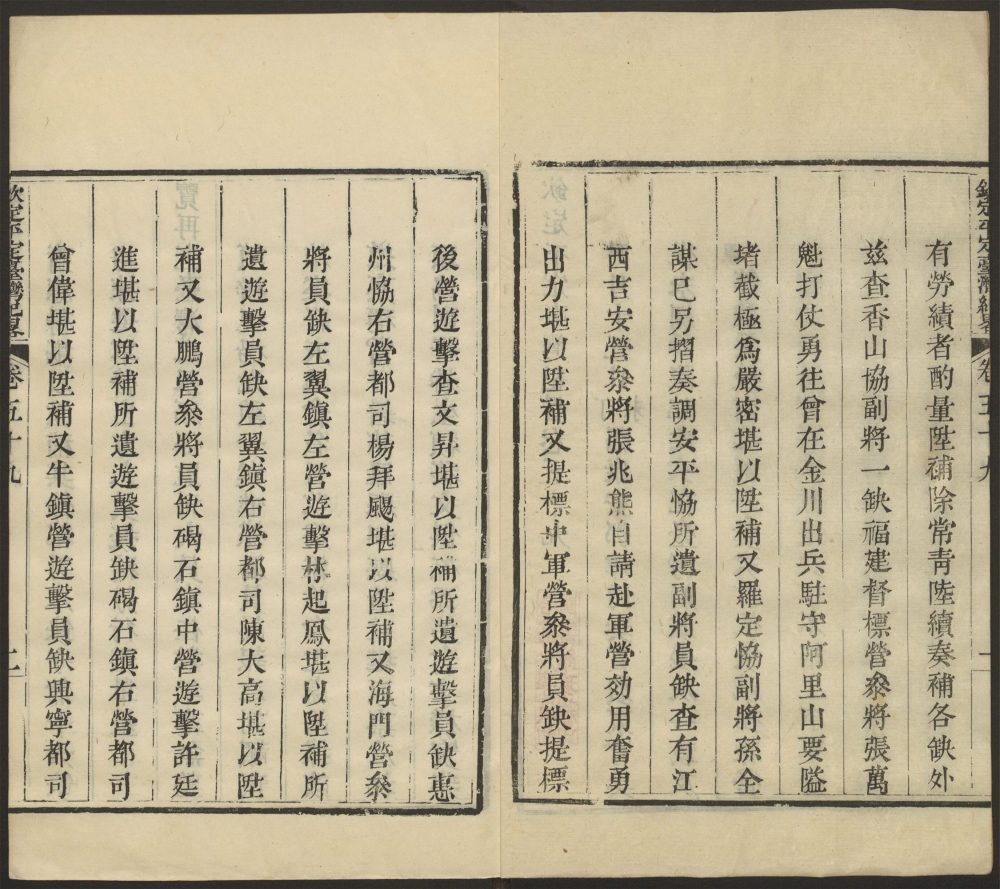 欽定平定臺灣紀畧 卷五十九 一
有勞績者酌量陞補除常青陸續奏補各缺外
兹查香山協副將一缺福建督標營叅將張萬
魁打仗勇往曾在金川出兵駐守阿里山要隘
堵截極爲嚴密堪以陞補又羅定協副將孫全
謀已另摺奏調安平協所遺副將員缺查有江
西吉安營叅將張兆熊自請赴軍營効用奮勇
出力堪以陞補又提標中軍營叅將員缺提標
後營遊擊查文昇堪以陞補所遺遊擊員缺惠
州協右營都司楊拜颺堪以陞補又海門營叅
將員缺左翼鎮左營遊擊林起鳳堪以陞補所
遺遊擊員缺左翼鎮右營都司陳大高堪以陞
補又大鵬營叅將員缺碣石鎮中營遊擊許廷
進堪以陞補所遺遊擊員缺碣石鎮右營都司
曾偉堪以陞補又牛鎮營遊擊員缺興寧都司
欽定平定臺灣紀畧 卷五十九 二